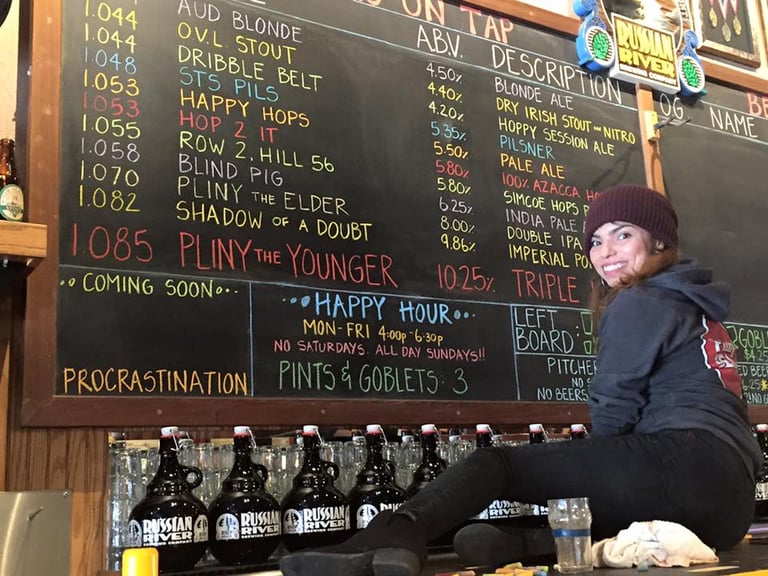 ON TAP
A.B.V. DESCRIPTION
OG NAME
1.044 AUD BLONDE 4.50% BLONDE ALE
1.044 O.V.L. STOUT 4.40% DRY IRISH STOUT ON NITRO
1.048 DRIBBLE BELT 4.20% HOPPY SESSION ALE
1.053 STS PILS 5.35% PILSNER
1.053 HAPPY HOPS 5.50% PALE ALE
1.055 HOP 2 IT 5.80% 100% AZACCA
1.058 ROW 2, HILL 56 5.80% SIMCOE HOPS
1.070 BLIND PIG 6.25% INDIA PALE
1.082 PLINY THE ELDER 8.00% DOUBLE IPA
SHADOW OF A DOUBT 9.86% IMPERIAL
1.085 PLINY THE YOUNGER 10.25% TRIPLE
COMING SOON
PROCRASTINATION
HAPPY HOUR
MON-FRI 4:00P-6:30P
NO SATURDAYS. ALL DAY SUNDAYS!!
PINTS & GOBLETS: 3
LEFT
BOARD:
PITCHER
NO BEERS
RUSSIAN
RIVER
BREWING COMPANY
RUSSIAN
RIVER
BREWING COMPANY
RUSSIAN
RIVER
BREWING COMPANY
RUSSIAN
RIVER
BREWING COMPANY